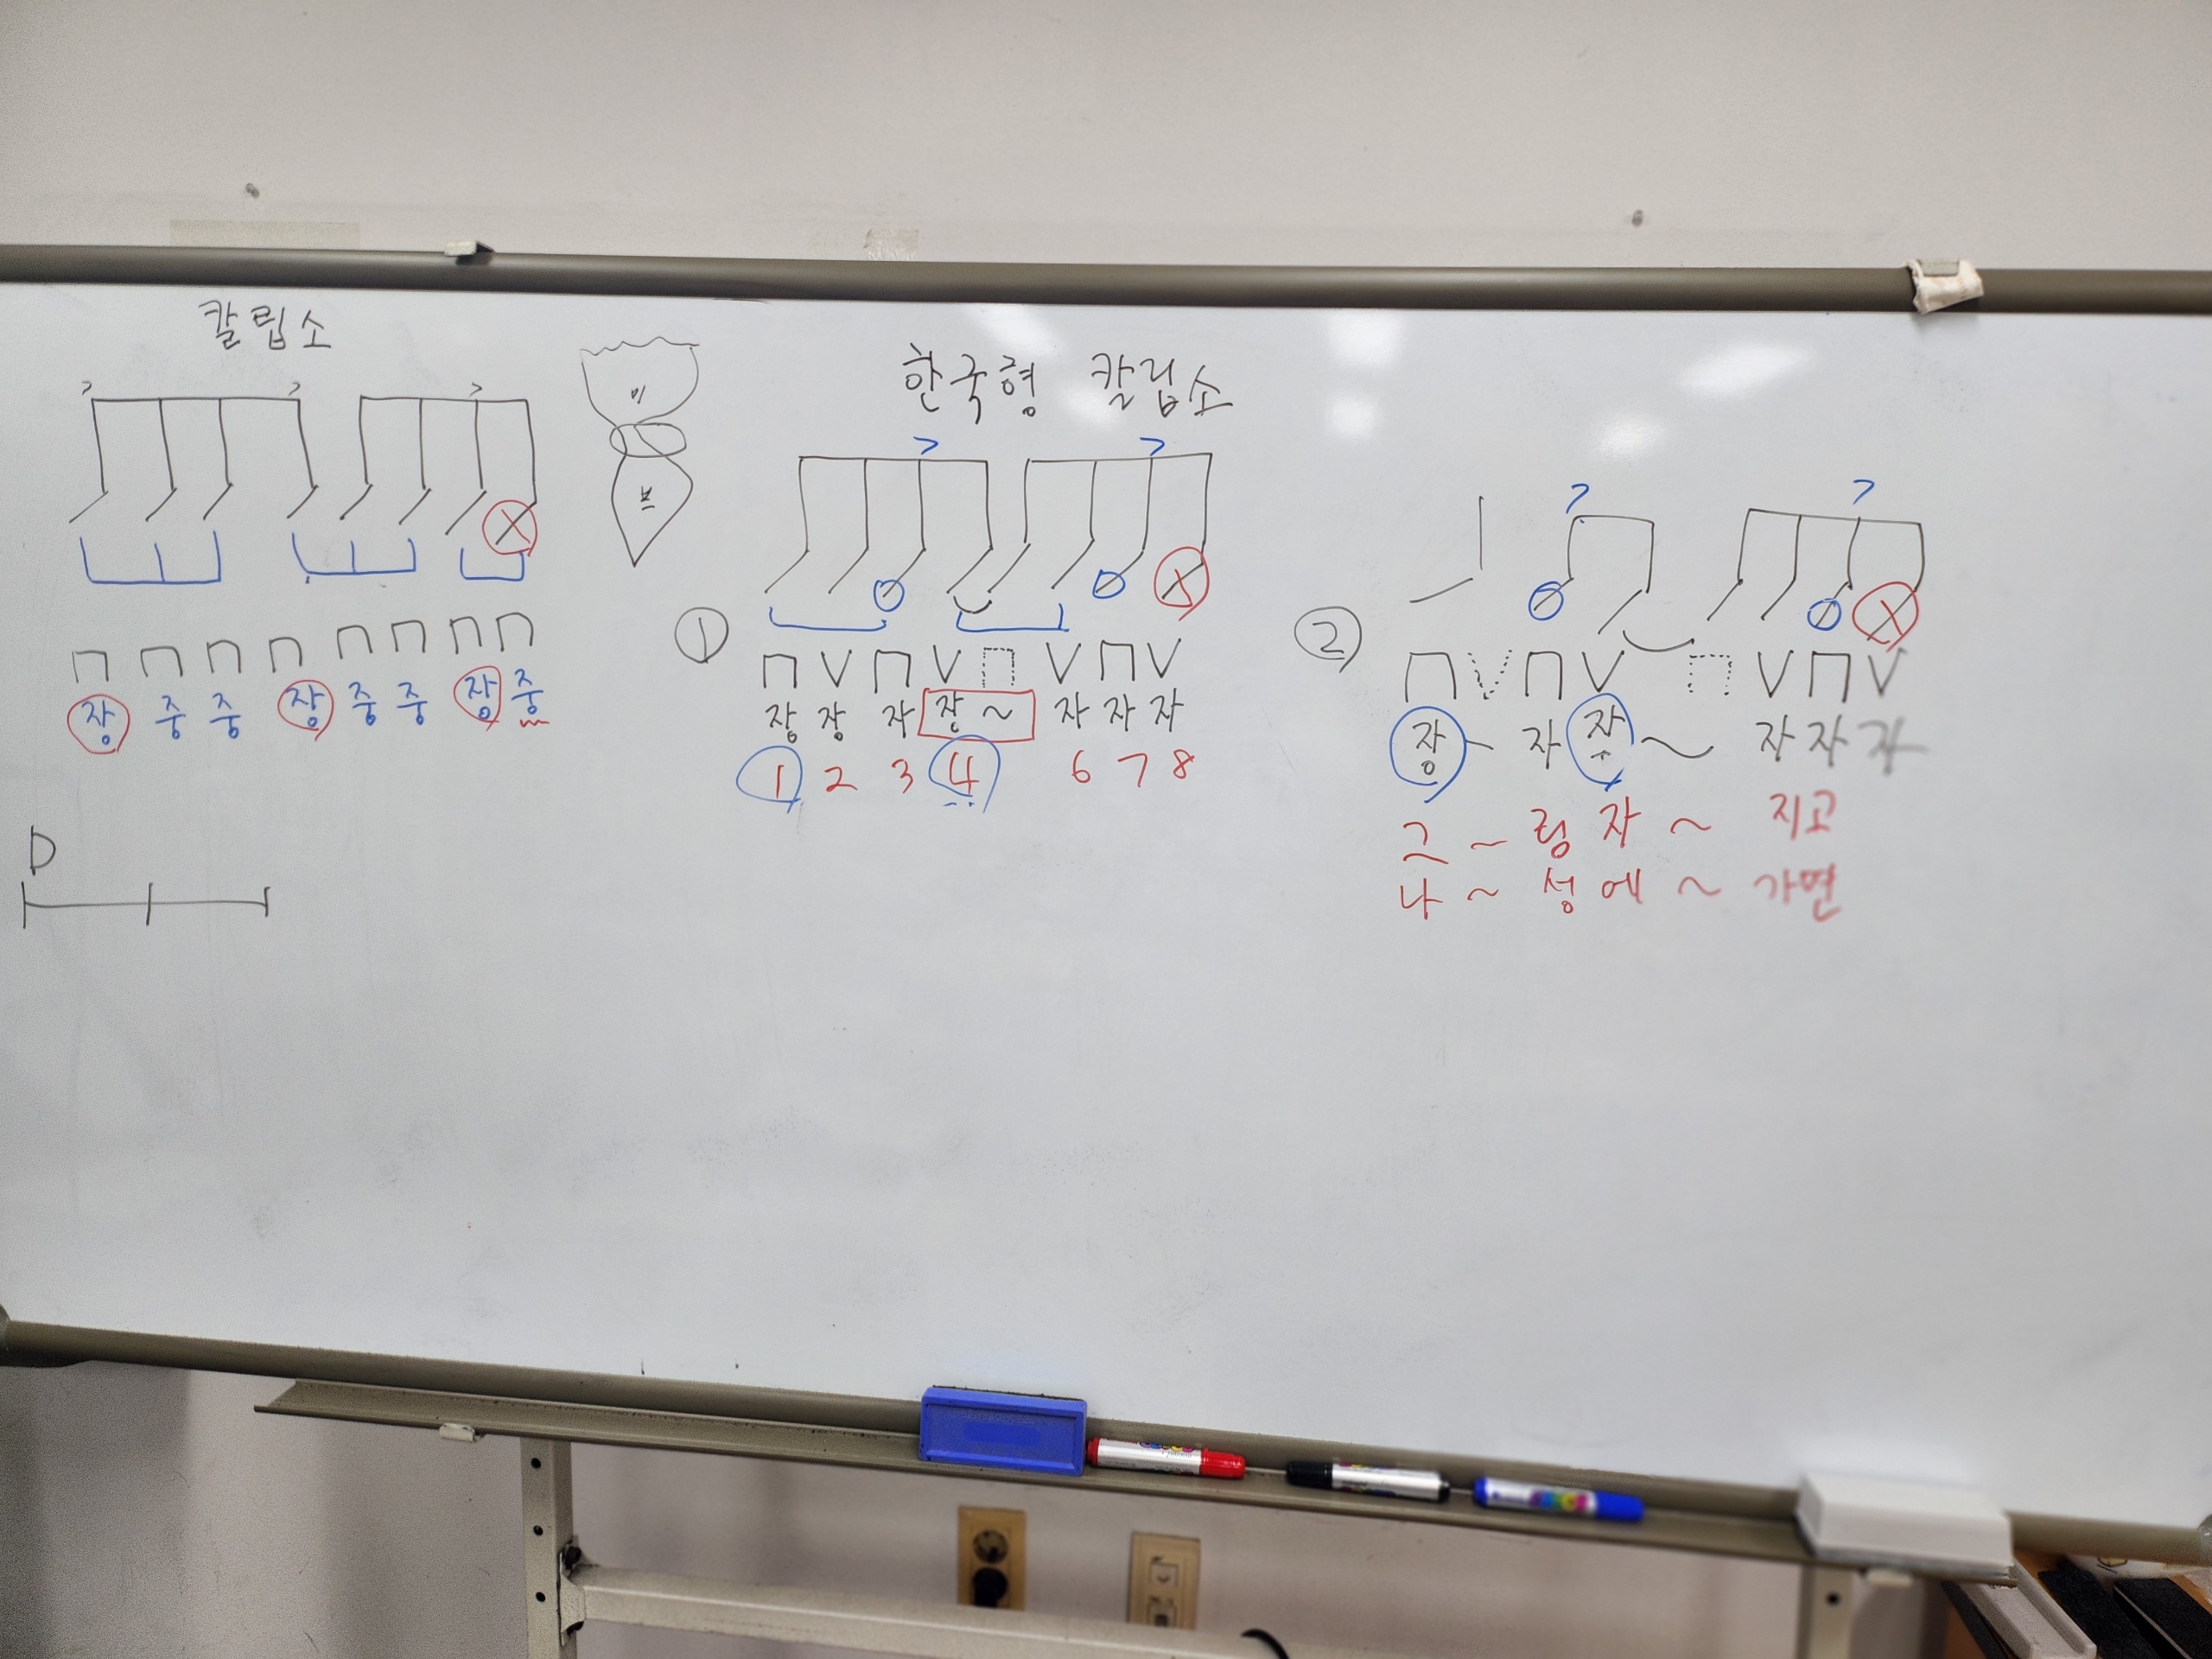 칼립소
> > >
X
장 중 중 장 중 중 장 중
D
한국형 칼립소
> >
X
①
장 장 자 장 ~ 자 자 자
1 2 3 4 6 7 8
> >
X
②
장 ~ 자 자 ~ 자 자 자
그 ~ 렁 자 ~ 지고
나 ~ 성에 ~ 가면